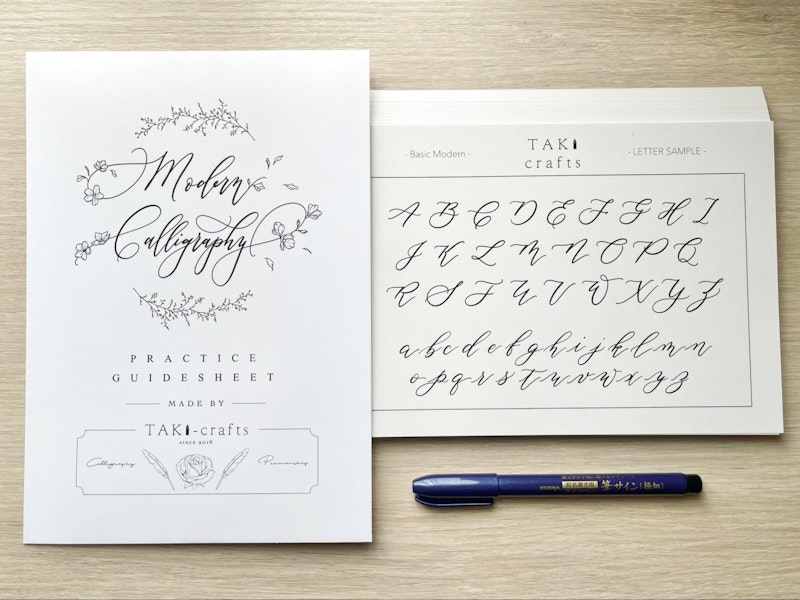 Modern
Calligraphy
PRACTICE
GUIDESHEET
MADE BY
TAKI-crafts
SINCE 2016
Calligraphy
Penmanship
- Basic Modern -
TAKI
crafts
- LETTER SAMPLE -
A B C D E F G H I
J K L M N O P Q
R S T U V W X Y Z
a b c d e f g h i j k l m n
o p q r s t u v w x y z
ZEBRA
筆サイン〔極細〕